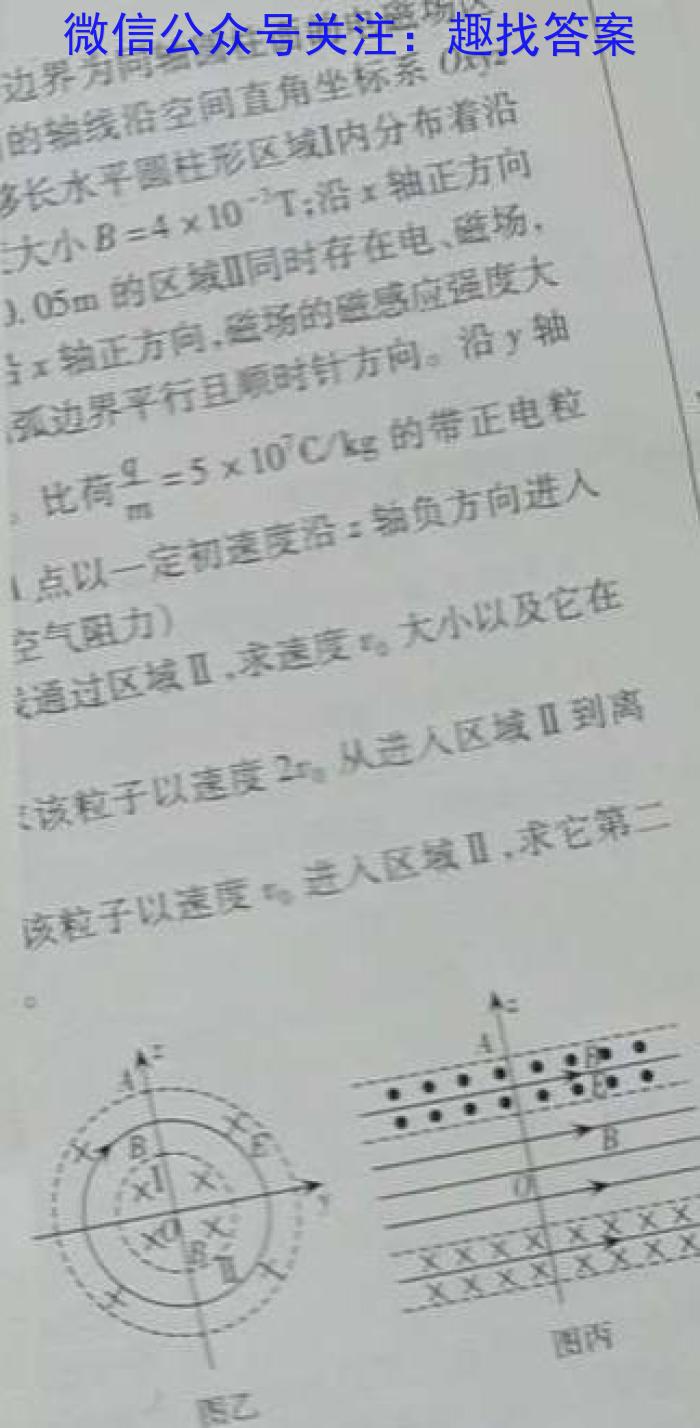 微信公众号关注：趣找答案
的轴线沿空间直角坐标系 Oxyz
够长水平圆柱形区域Ⅰ内分布着沿
大小 B = 4 × 10⁻²T;沿 x 轴正方向
0. 05m 的区域Ⅱ同时存在电、磁场,
沿 x 轴正方向,磁场的磁感应强度大
弧边界平行且顺时针方向。沿 y 轴
。比荷 q/m = 5 × 10⁷C/kg 的带正电粒
点以一定初速度沿 z 轴负方向进入
空气阻力）
通过区域Ⅱ,求速度 v₀ 大小以及它在
该粒子以速度 2v₀ 从进入区域Ⅱ到离
该粒子以速度 v₀ 进入区域Ⅱ,求它第二
。
z
A
B
E
Ⅰ
y
O
B
Ⅱ
图乙
z
A
B
E
B
O
图丙